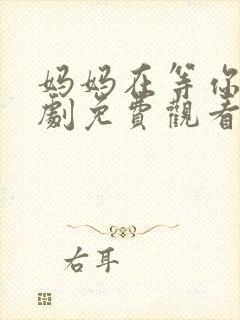 妈妈在等你
劇免費觀看
右耳